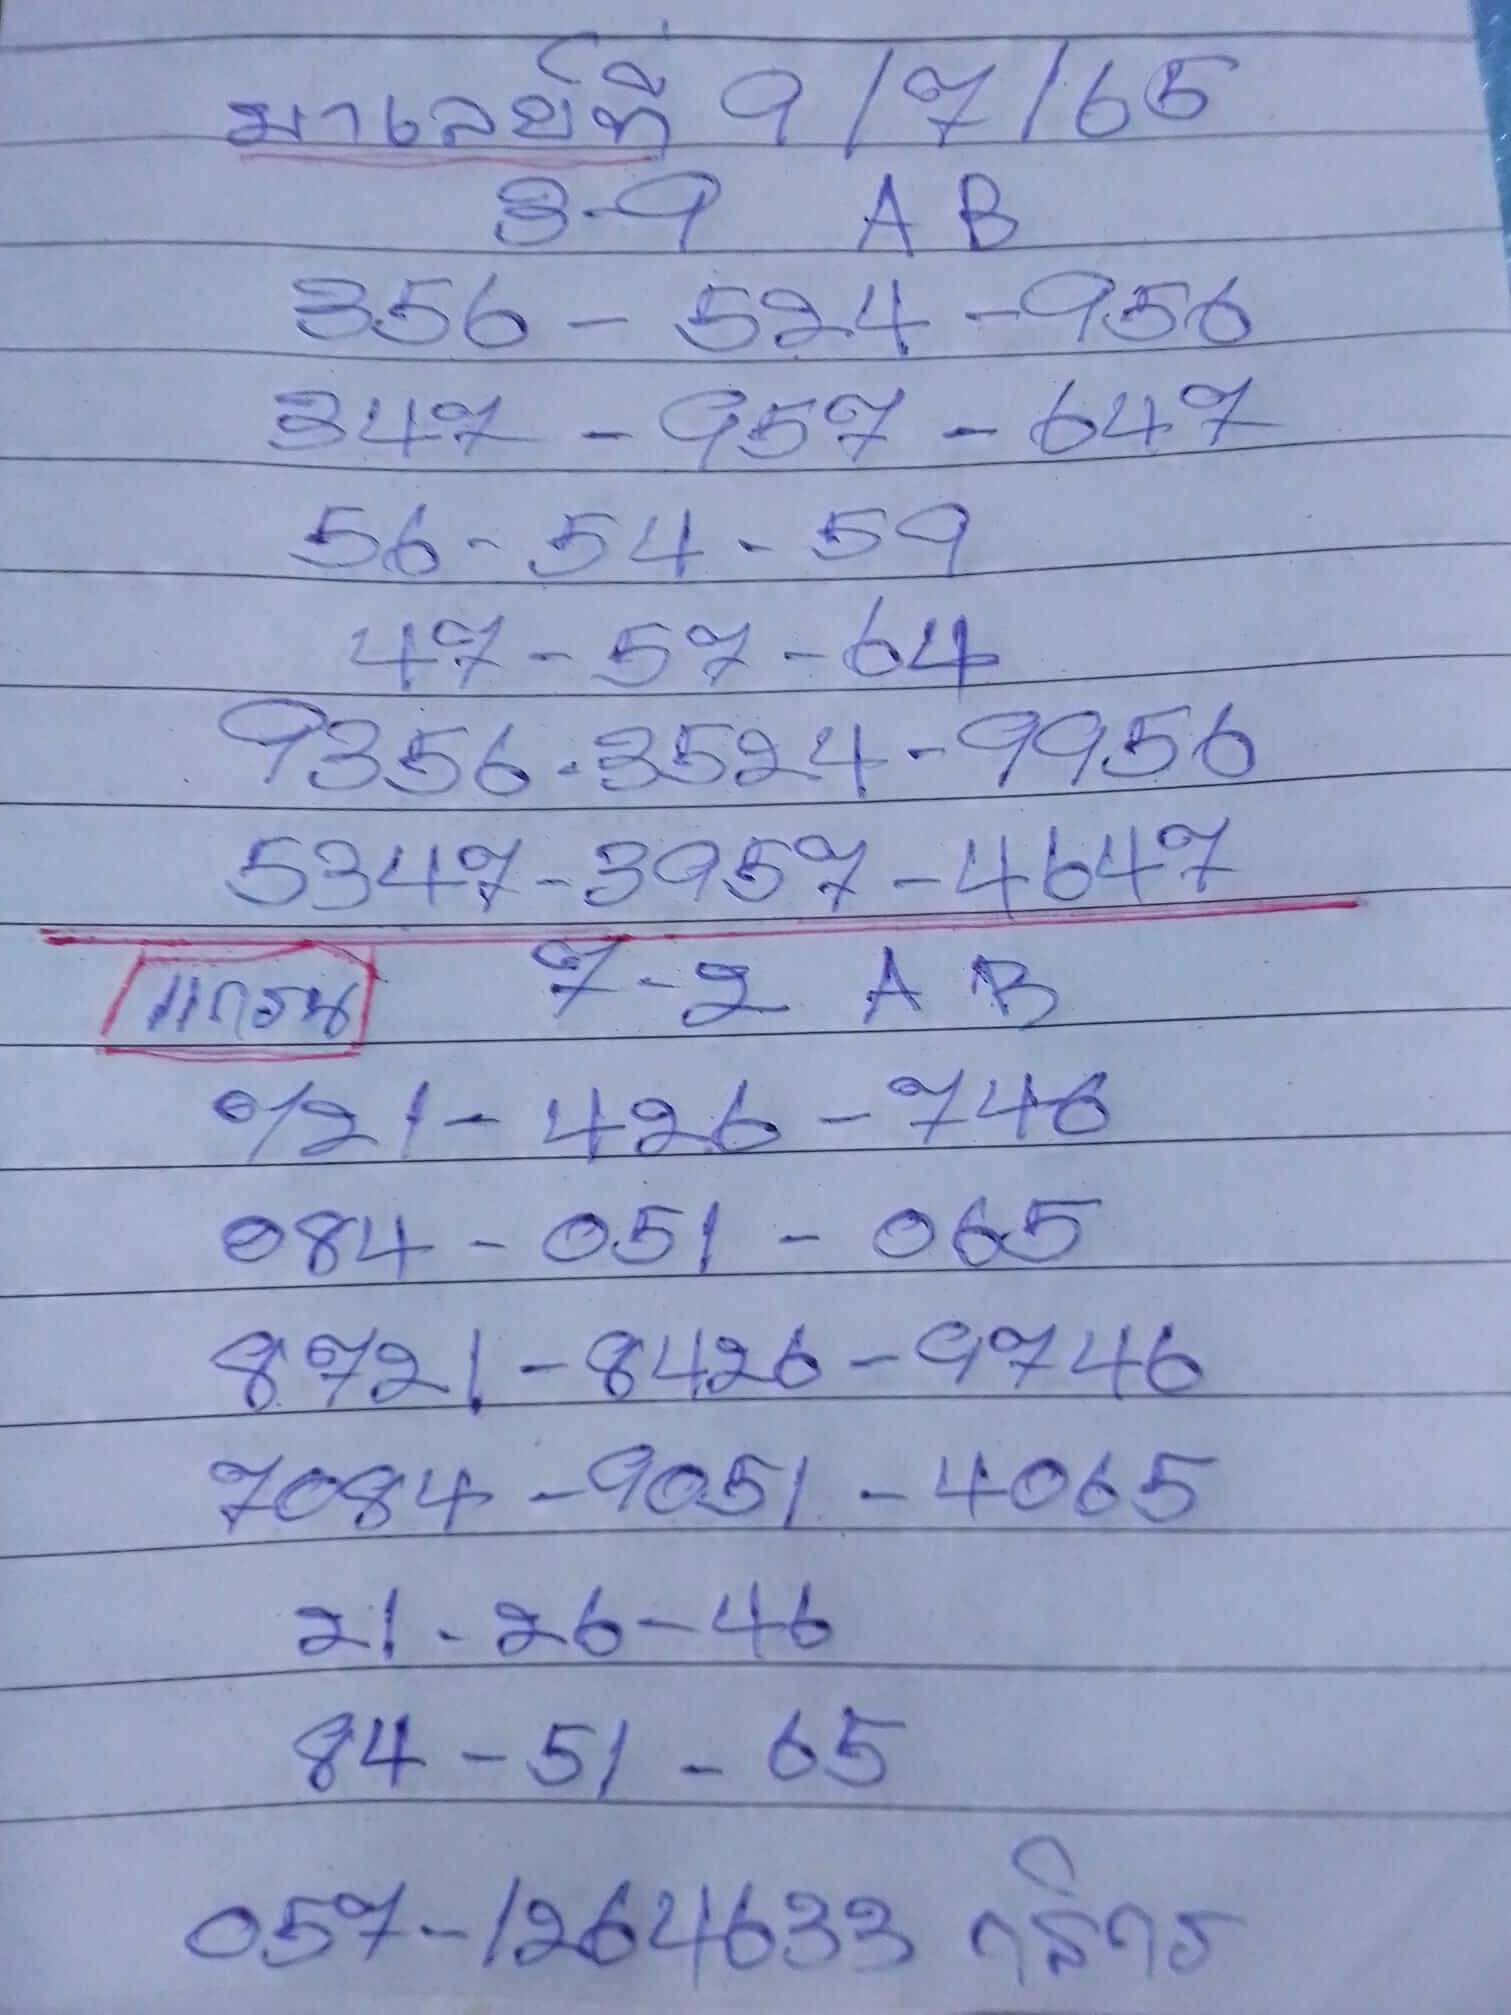 มาเลย์ที่ 9/7/65
3-9 A B
356 - 524 - 956
347 - 957 - 647
56 - 54 - 59
47 - 57 - 64
9356 - 3524 - 9956
5347 - 3957 - 4647
แกรน 7-2 A B
721 - 426 - 746
084 - 051 - 065
8721 - 8426 - 9746
7084 - 9051 - 4065
21 - 26 - 46
84 - 51 - 65
057-1264633